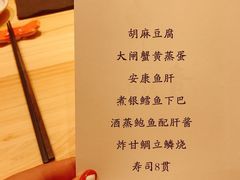 胡麻豆腐
大闸蟹黄蒸蛋
安康鱼肝
煮银鳕鱼下巴
酒蒸鲍鱼配肝酱
炸甘鲷立鳞烧
寿司8贯